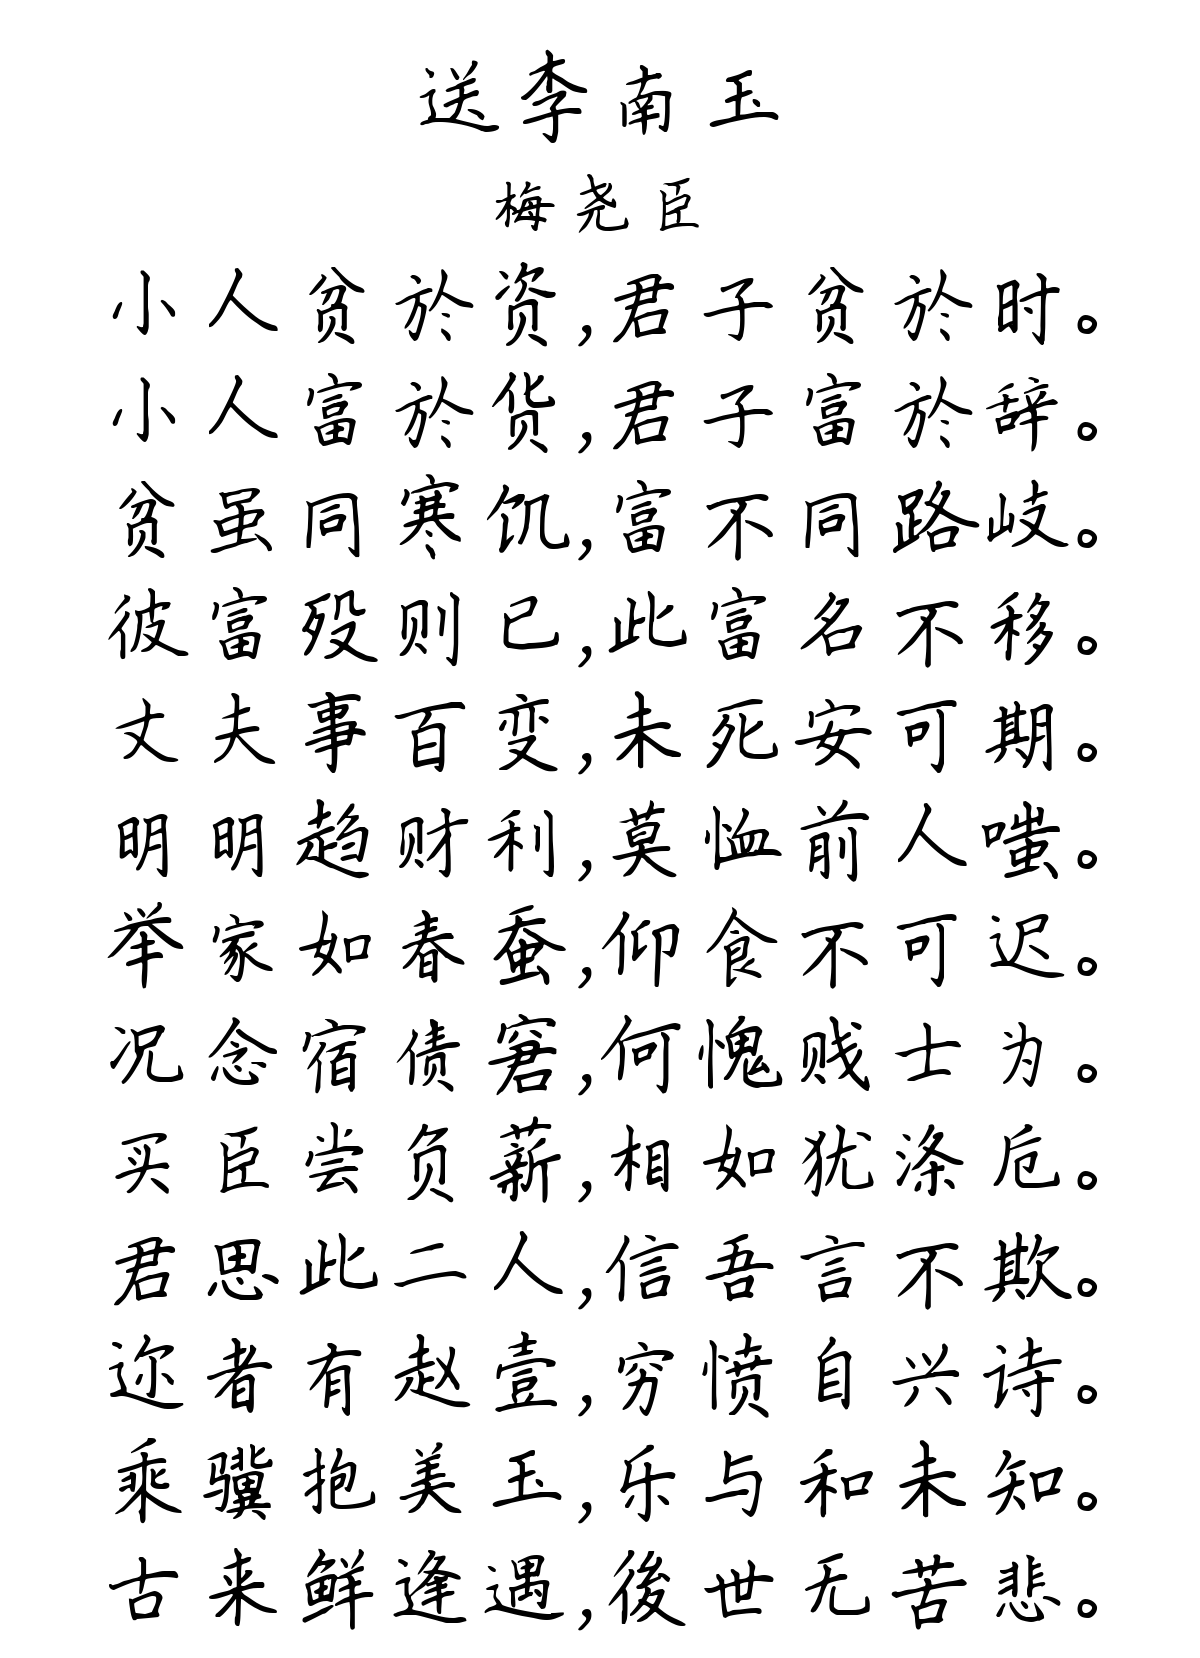 送李南玉
梅尧臣
小人贫於资,君子贫於时。
小人富於货,君子富於辞。
贫虽同寒饥,富不同路歧。
彼富殁则已,此富名不移。
丈夫事百变,未死安可期。
明明趋财利,莫恤前人嗤。
举家如春蚕,仰食不可迟。
况念宿债窘,何愧贱士为。
买臣尝负薪,相如犹涤卮。
君思此二人,信吾言不欺。
迩者有赵壹,穷愤自兴诗。
乘骥抱美玉,乐与和未知。
古来鲜逢遇,後世无苦悲。